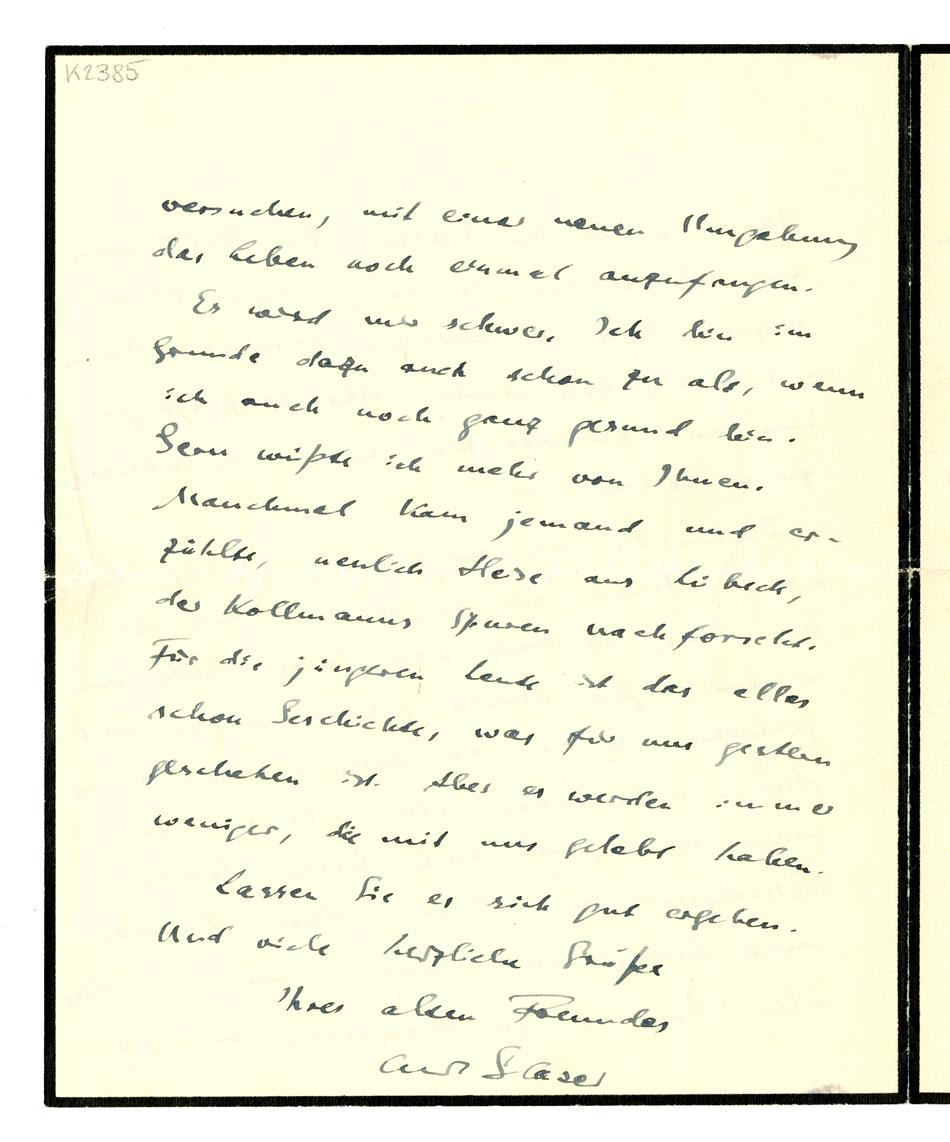 K2385
versuchen, mit einer neuen Umgebung
das Leben noch einmal anzufangen.
Es wird mir schwer. Ich bin im
Grunde dazu auch schon zu alt, wenn
ich auch noch ganz gesund bin.
Gern wüßte ich mehr von Ihnen.
Manchmal kam jemand und er-
zählte, neulich Heise aus Lübeck,
der Kollmanns Spuren nachforscht.
Für die jüngeren Leute ist das alles
schon Geschichte, was für uns gestern
geschehen ist. Aber es werden immer
weniger, die mit uns gelebt haben.
Lassen Sie es sich gut ergehen.
Und viele herzliche Grüße
Ihres alten Freundes
Curt Glaser